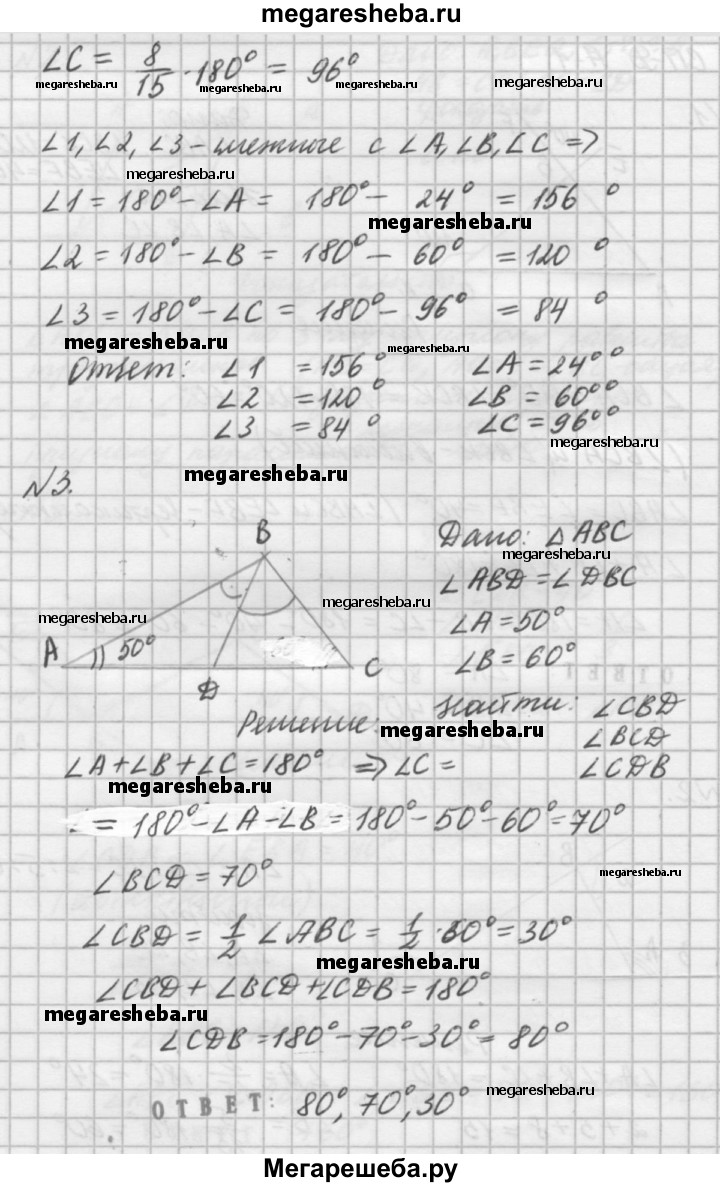 megaresheba.ru
∠C = 8/15 · 180° = 96°
megaresheba.ru megaresheba.ru megaresheba.ru megaresheba.ru
∠1, ∠2, ∠3 – смежные с ∠A, ∠B, ∠C ⇒
megaresheba.ru
∠1 = 180° – ∠A = 180° – 24° = 156°
megaresheba.ru
∠2 = 180° – ∠B = 180° – 60° = 120°
∠3 = 180° – ∠C = 180° – 96° = 84°
megaresheba.ru megaresheba.ru
Ответ: ∠1 = 156° ∠A = 24°°
∠2 = 120° ∠B = 60°°
∠3 = 84° ∠C = 96°°
megaresheba.ru
megaresheba.ru
N3.
B
Дано: △ABC
megaresheba.ru
∠ABD = ∠DBC
megaresheba.ru megaresheba.ru
∠A = 50°
megaresheba.ru
A 50° D C
∠B = 60°
ОТВЕТ
Найти: ∠CBD
∠BCD
∠CDB
Решение:
megaresheba.ru
∠A + ∠B + ∠C = 180° ⇒ ∠C =
megaresheba.ru
= 180° – ∠A – ∠B = 180° – 50° – 60° = 70°
∠BCD = 70°
megaresheba.ru
∠CBD = 1/2 ∠ABC = 1/2 · 60° = 30°
megaresheba.ru
∠CBD + ∠BCD + ∠CDB = 180°
megaresheba.ru
∠CDB = 180° – 70° – 30° = 80°
megaresheba.ru
ОТВЕТ: 80°, 70°, 30°
Мегарешеба.ру